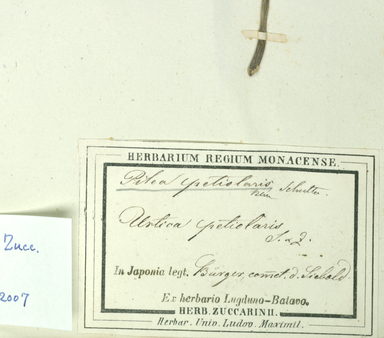 HERBARIUM REGIUM MONACENSE.
Pilea petiolaris
Urtica petiolaris
S. & Z.
In Japonia legt. Bürger, comit. d. Siebold
Ex herbario Lugduno-Batavo.
HERB. ZUCCARINII.
Herbar. Univ. Ludov. Maximil.
Zucc.
2007